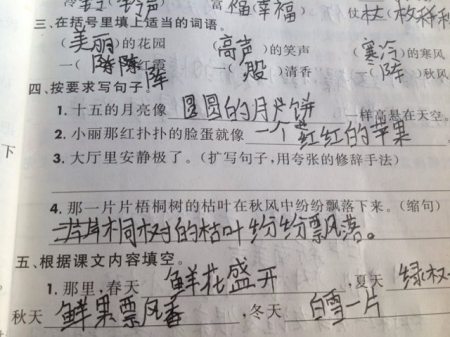 三、在括号里填上适当的词语。
(美丽)的花园 (高声)的笑声 (寒冷)的寒风
一(阵)红霞 一(股)清香 一(阵)秋风
四、按要求写句子。
1. 十五的月亮像 圆圆的月饼 一样高悬在天空。
2. 小丽那红扑扑的脸蛋就像 一个红红的苹果
3. 大厅里安静极了。(扩写句子,用夸张的修辞手法)
下
4. 那一片片梧桐树的枯叶在秋风中纷纷飘落下来。(缩句)
桐树的枯叶纷纷飘落。
五、根据课文内容填空。
1. 那里,春天 鲜花盛开 ,夏天 绿
秋天 鲜果飘香 ,冬天 白雪一片